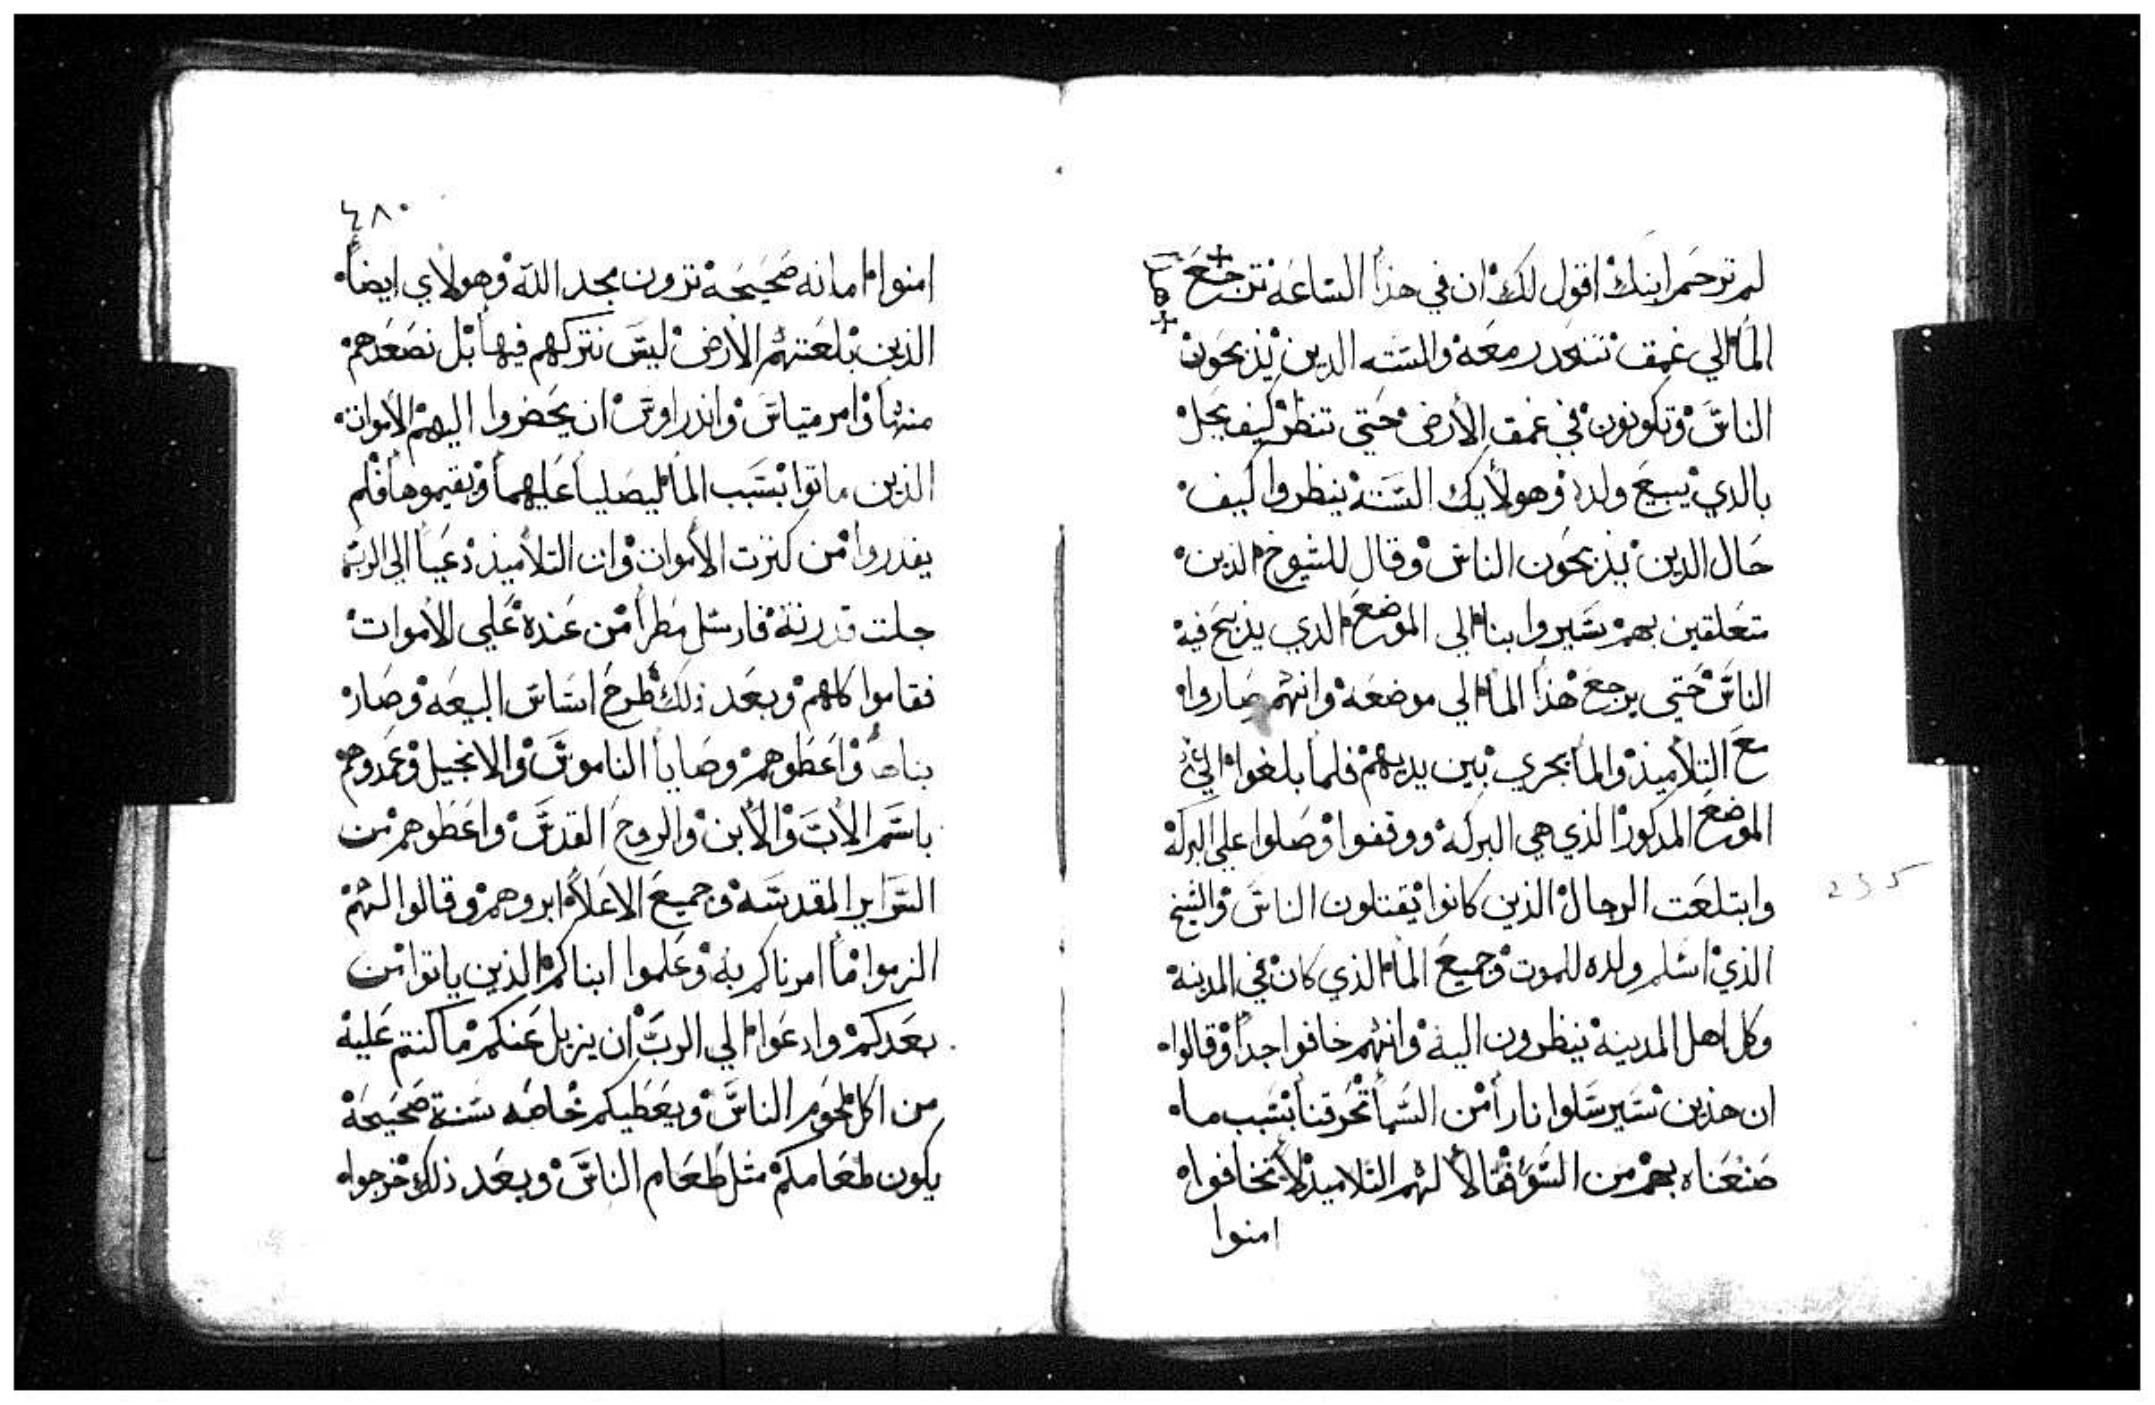 لم ترحم ابنك اقول لك ان في هذا الساعه ترجع
الما الي غمق تنحدر معه والسته الدين يذبحون
الناس وتكونون في غمق الأرض حتي تنظر كيف يحل
بالدي يبيع ولده وهولأيك الستة ينظروا كيف
حال الدين يذبحون الناس وقال للشيوخ الذين
متعلقين بهم سيروا بنا الي الموضع الدي يذبح فيه
الناس حتي يرجع هذا الما الي موضعه وانهم صاروا
مع التلأميذ والما يجري بين يديهم فلما بلغوا الي
الموضع المدكور الذي هي البركه ووقفوا وصلوا علي البركه
وابتلعت الرجال الذين كانوا يقتلون الناس والشيخ
الذي اسلم ولده للموت وجميع الما الذي كان في المدينه
وكل اهل المدينة ينظرون اليه وانهم خافوا جداً وقالوا
ان هذين سيرسلوا ناراً من السما تحرقنا بسبب ما
صنعناه بهم من السوء فقالا لهم التلاميد لأ تخافوا
امنوا
٤٨٠
امنوا امانه صحيحة ترون مجد الله وهولاي ايضاً
الذين بلعتهم الأرض ليس نتركهم فيها بل نصعدهم
منها وامر متياس واندراوس ان يحضروا اليهم الأموات
الذين ماتوا بسبب الما ليصليا عليهما ويقيموها فلم
يقدروا من كترت الأموات وان التلأميذ دعيا الي الرب
جلت قدرته فارسل مطراً من عنده علي الأموات
فقاموا كلهم وبعد ذلك طرح اساس البيعه وصار
بناها واعطوهم وصايا الناموس والانجيل وعمدوهم
باسم الأب والأبن والروح القدس واعطوهم من
السراير المقدسه وجميع الاعلاء ابروهم وقالوا لهم
الزموا ما امرناكم به وعلموا ابناكم الذين ياتوا من
بعدكم وادعوا الي الرب ان يزيل عنكم ما كنتم عليه
من اكل لحوم الناس ويعطيكم خاصه سنة صحيحة
يكون طعامكم مثل طعام الناس وبعد ذلك خرجوا
235